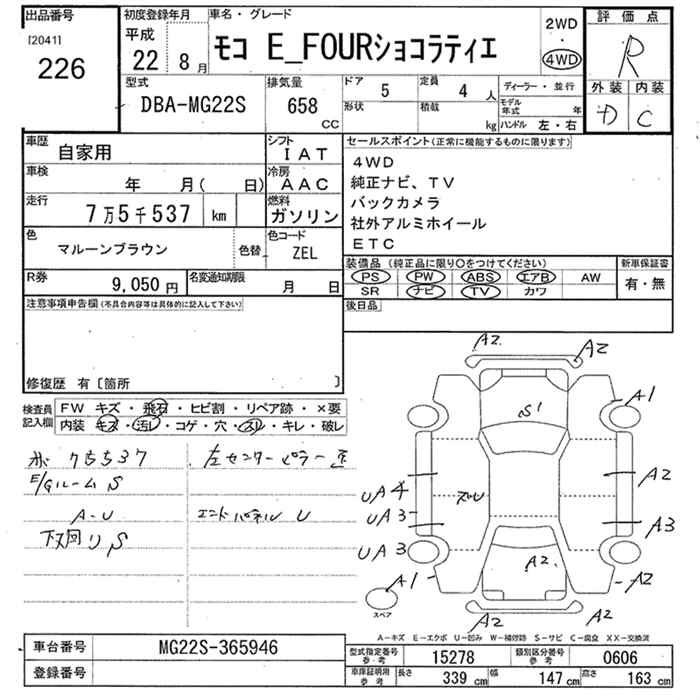 出品番号
[2041]
226
初度登録年月
平成
22 8月
車名・グレード
モコ E_FOURショコラティエ
2WD
・
4WD
評価点
R
外装 内装
D C
型式
DBA-MG22S
排気量
658
CC
ドア
5
形状
定員
4 人
積載
kg
ディーラー・並行
モデル年式 年
ハンドル 左・右
車歴
自家用
シフト
IAT
車検
年 月( 日)
冷房
AAC
走行
7万5千537 km
燃料
ガソリン
色
マルーンブラウン
色替
色コード
ZEL
R券
9,050円
名変通知期限
月 日
セールスポイント(正常に機能するものに限ります)
4WD
純正ナビ、TV
バックカメラ
社外アルミホイール
ETC
装備品(純正品に限り○をつけてください)
PS PW ABS エアB AW
SR ナビ TV カワ
新車保証書
有・無
後日品
注意事項申告欄(不具合内容等は具体的に記入して下さい)
修復歴 有〔箇所 〕
検査員記入欄
FW キズ・飛石・ヒビ割・リペア跡・×要
内装 キズ・汚れ・コゲ・穴・スレ・キレ・破レ
75537
左センターピラー
E/Gルーム S
A-U
エンドパネル U
下回り S
A2
A2
A1
S'
A2
UA4
UA3
A3
UA3
A2
A1
A2
A2
A2
スペア
A-キズ E-エクボ U-凹み W-補修跡 S-サビ C-腐食 XX-交換済
車台番号
MG22S-365946
登録番号
型式指定番号 参考
15278
類別区分番号 参考
0606
車庫証明用 参考
長さ 339 cm 幅 147 cm 高さ 163 cm